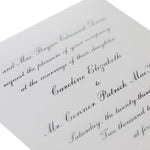 and Mrs. Bryan Edmund Davis
request the pleasure of your company
at the marriage of their daughter
Caroline Elizabeth
to
Mr. Connor Patrick Mac
Saturday, the twenty third
Two thousand
at five